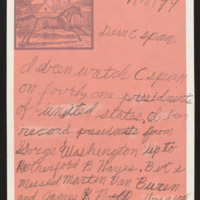 Dear C span
I been watch C span
on forty one presidents
of united states. I
record presidents from
George Washington up to
Rutherford B Hayes. But I
missed Martin Van Buren
and James K Polk